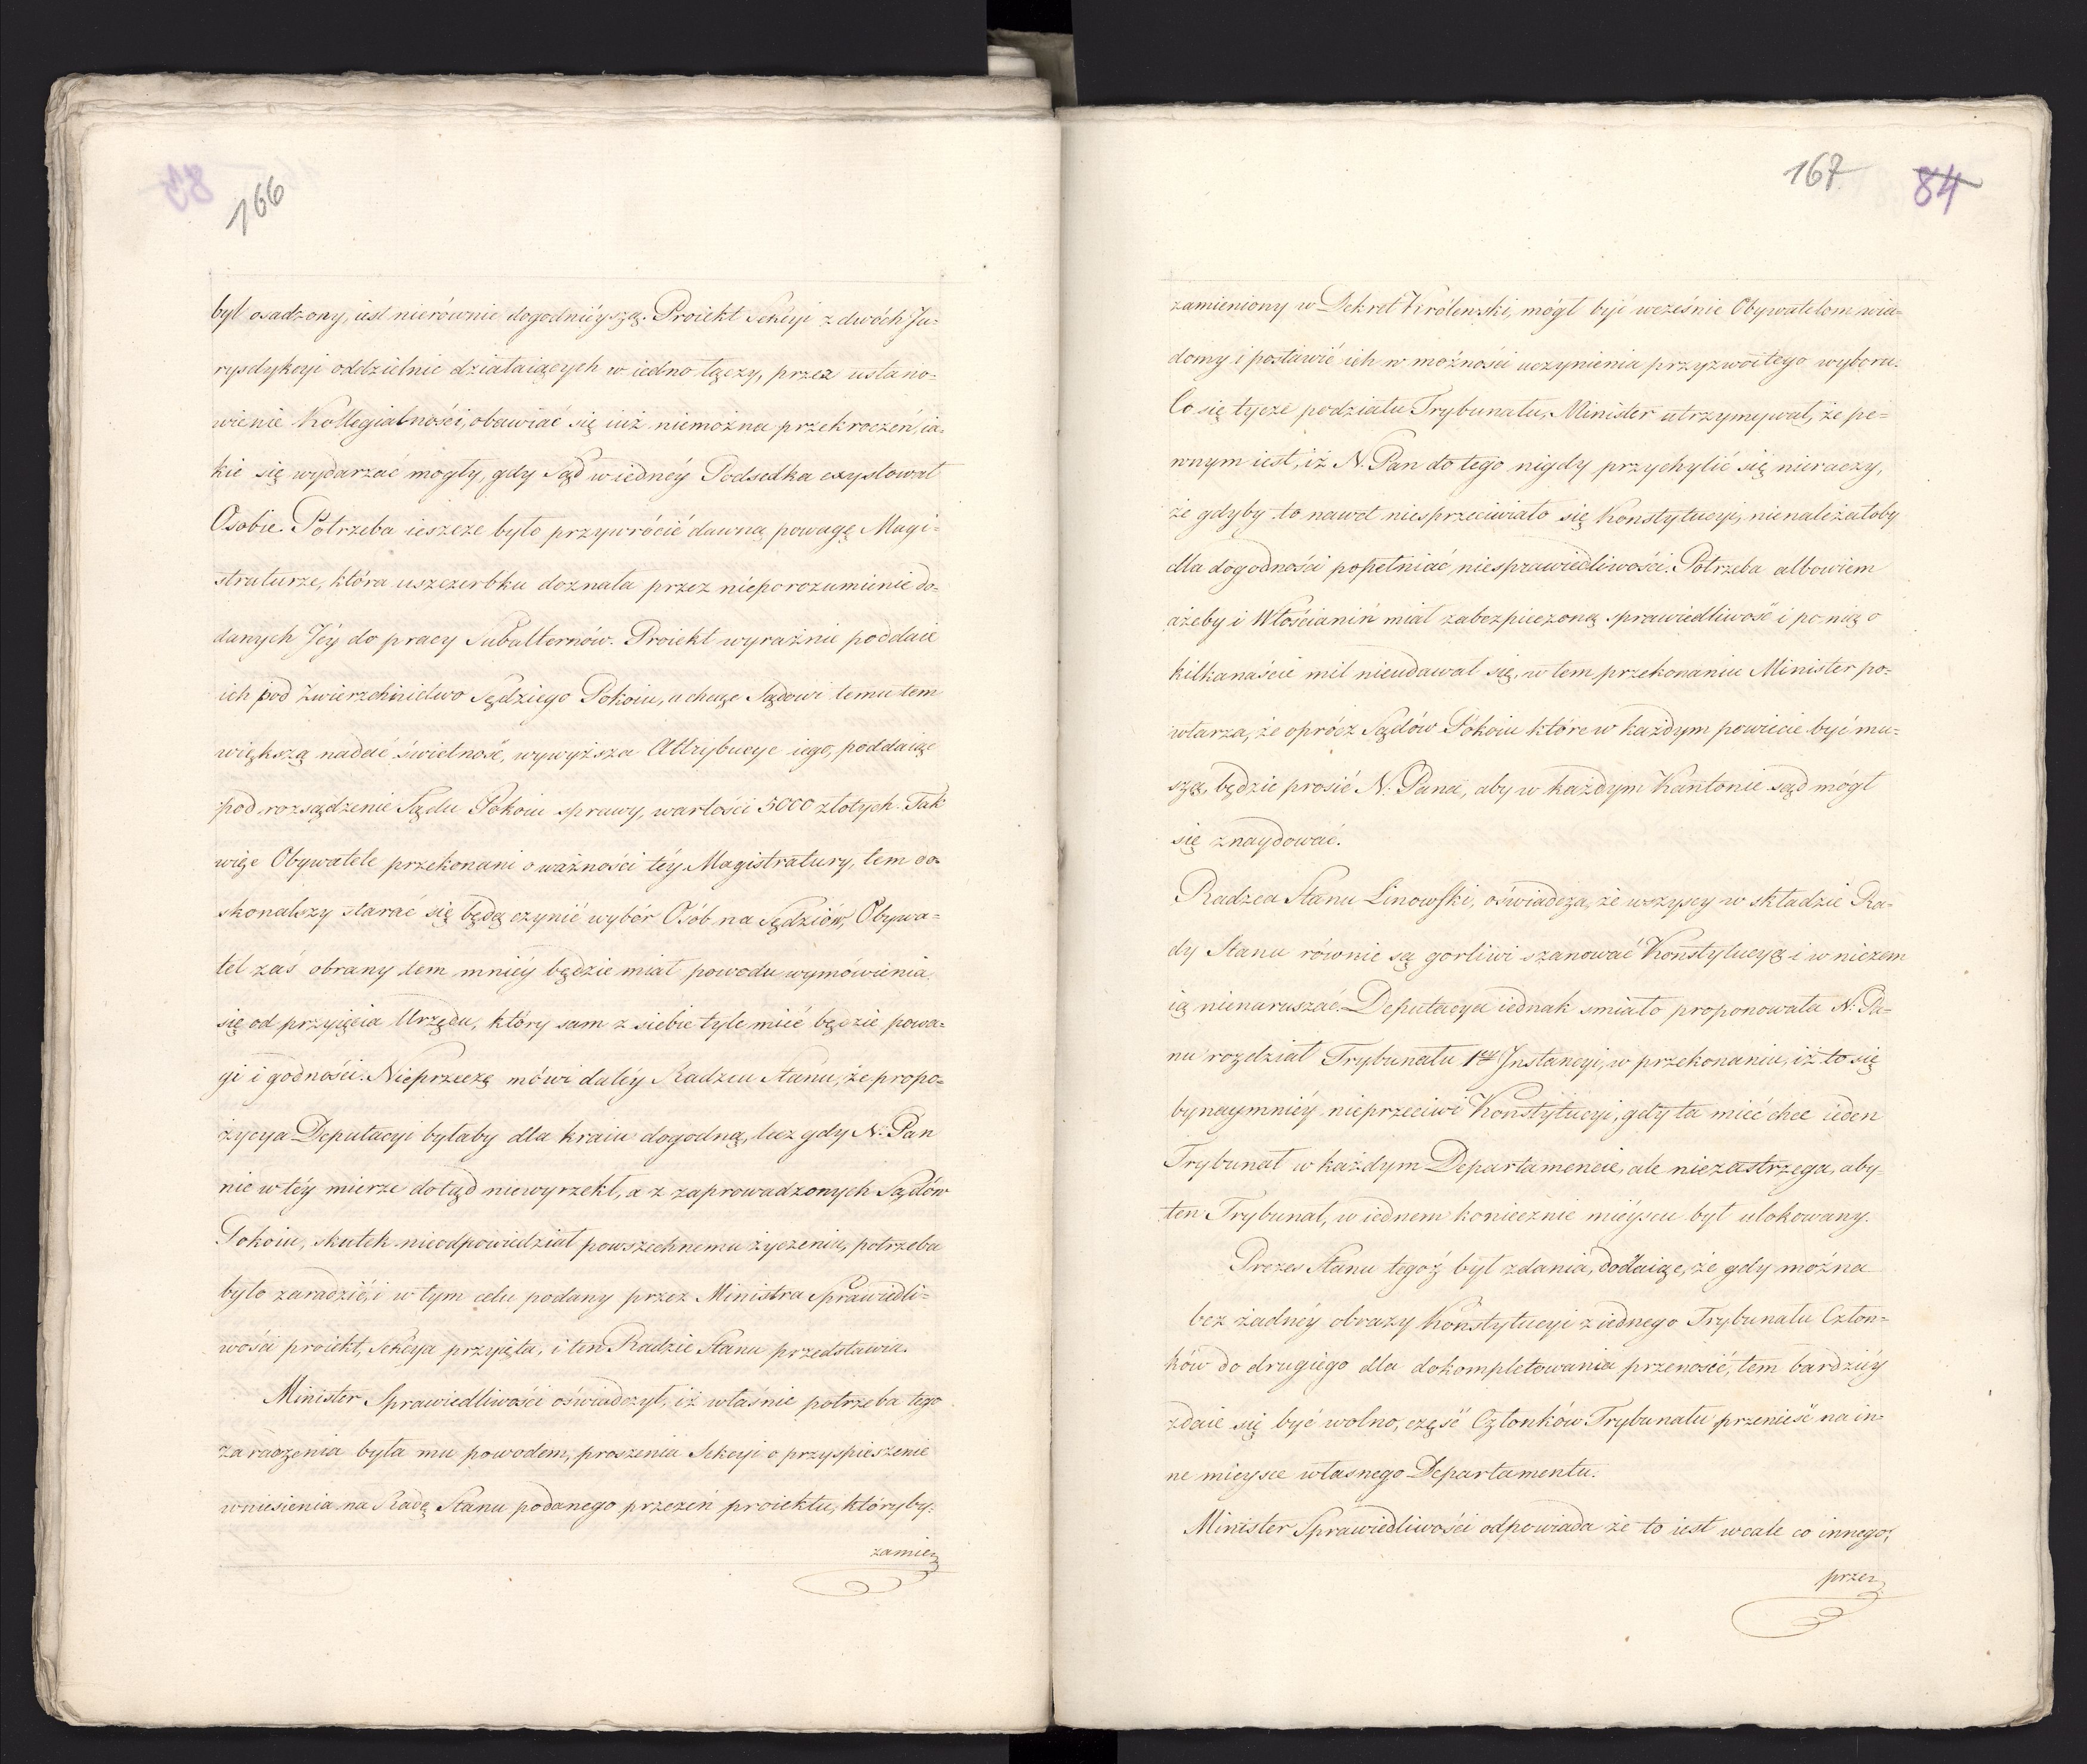 166
był osadzony, iest nierównie dogodnieyszą. Proiekt Sekcyi z dwóch Ju-
rysdykcyi oddzielnie działaiących w iedno łączy, przez ustano-
wienie Kollegialności, obawiać się iuż niemożna przekroczeń, ia-
kie się wydarzać mogły, gdy Sąd w iedney Podsedka exystował
Osobie. Potrzeba ieszcze było przywrócić dawną powagę Magi-
straturze, która uszczerbku doznała przez nieporozumienie do-
danych Jéy do pracy Subalternów. Proiekt wyraźnie poddaie
ich pod Zwierzchnictwo Sędziego Pokoiu, a chcąc Sądowi temu tem
większą nadać świetność, wywyższa Attrybucye iego, poddaiąc
pod rozsądzenie Sądu Pokoiu sprawy, wartości 5000 złotych. Tak
więc Obywatele przekonani o ważności téy Magistratury, tem do-
skonalszy starać się będą czynić wybór Osób na Sędziów, Obywa-
tel zaś obrany tem mniéy będzie miał powodu wymówienia
się od przyięcia Urzędu, który sam z siebie tyle mieć będzie powa-
gi i godności. Nieprzeczę mówi daléy Radzca Stanu, że propo-
zycya Deputacyi byłaby dla kraiu dogodną, lecz gdy N. Pan
nic w téy mierze dotąd niewyrzekł, a z zaprowadzonych Sądów
Pokoiu, skutek nieodpowiedział powszechnemu życzeniu, potrzeba
było zaradzić, i w tym celu podany przez Ministra Sprawiedli-
wości proiekt, Sekcya przyięła, i ten Radzie Stanu przedstawia.
Minister Sprawiedliwości oświadczył, iż właśnie potrzeba tego
zaradzenia była mu powodem, proszenia Sekcyi o przyspieszenie
wniesienia na Radę Stanu podanego przezeń proiektu, któryby.
zamie
167 84
zamieniony w Dekret Królewski, mógł być wcześnie Obywatelom wia-
domy i postawić ich w możności uczynienia przyzwoitego wyboru.
Co się tycze podziału Trybunału, Minister utrzymywał, że pe-
wnym iest, iż N. Pan do tego nigdy przychylić się nieraczy,
że gdyby to nawet niesprzeciwiało się Konstytucyi, nienależałoby
dla dogodności popełniać niesprawiedliwości. Potrzeba albowiem
ażeby i Włościanin miał zabezpieczoną sprawiedliwość i po nią o
kilkanaście mil nieudawał się, w tem przekonaniu Minister po-
wtarza, że oprócz Sądów Pokoiu które w każdym powiecie być mu-
szą, będzie prosić N: Pana, aby w każdym Kantonie sąd mógł
się znaydować.
Radzca Stanu Linowski, oświadcza, że wszyscy w składzie Ra-
dy Stanu równie są gorliwi szanować Konstytucyą i w niczem
ią nienaruszać. Deputacya iednak śmiało proponowała N: Pa-
nu rozdział Trybunału 1éy Instancyi, w przekonaniu, iż to się
bynaymniéy nieprzeciwi Konstytucyi, gdy ta mieć chce ieden
Trybunał w każdym Departamencie, ale niezastrzega, aby-
ten Trybunał, w iednem koniecznie mieyscu był ulokowany.
Prezes Stanu tegoż był zdania, dodaiąc, że gdy można
bez żadnéy obrazy Konstytucyi z iednego Trybunału Człon-
ków do drugiego dla dokompletowania przenosić, tem bardziéy
zdaie się być wolno, część Członków Trybunału przenieść na in-
ne mieysce własnego Departamentu.
Minister Sprawiedliwości odpowiada że to iest wcale co innego,
prze